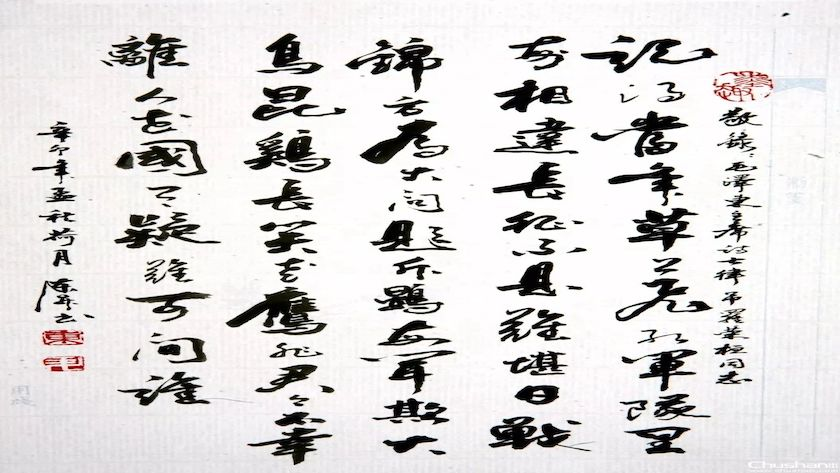 墨趣
敬録毛澤東主席詩七律吊羅榮桓同志
記得當年草上飛紅軍隊里
每相違長征不是難堪日戰
錦方為大问題斥鷃每闻欺大
鳥昆鷄長笑老鷹非君今不幸
離人世國有疑難可问誰
辛卯年孟秋荷月
Chushan